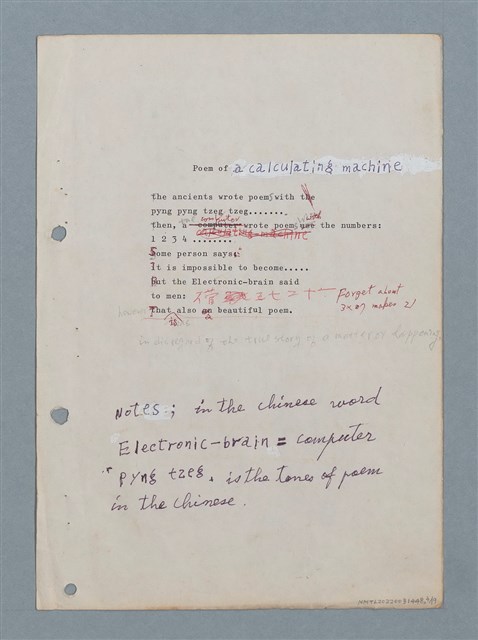 Poem of a calculating machine
the ancients wrote poems with the
pyng pyng tzeg tzeg.......
computer
then, a computer wrote poem use the numbers:
calculating-machine
1 2 3 4 ........
Some person says:"
It is impossible to become.....
But the Electronic-brain said
to men: 三七二十一 Forget about
3x7 makes 21
That also a beautiful poem.
in disregard of the true story of a matter or happening
Notes; in the chinese word
Electronic-brain = computer
"pyng tzeg. is the tones of poem
in the chinese.